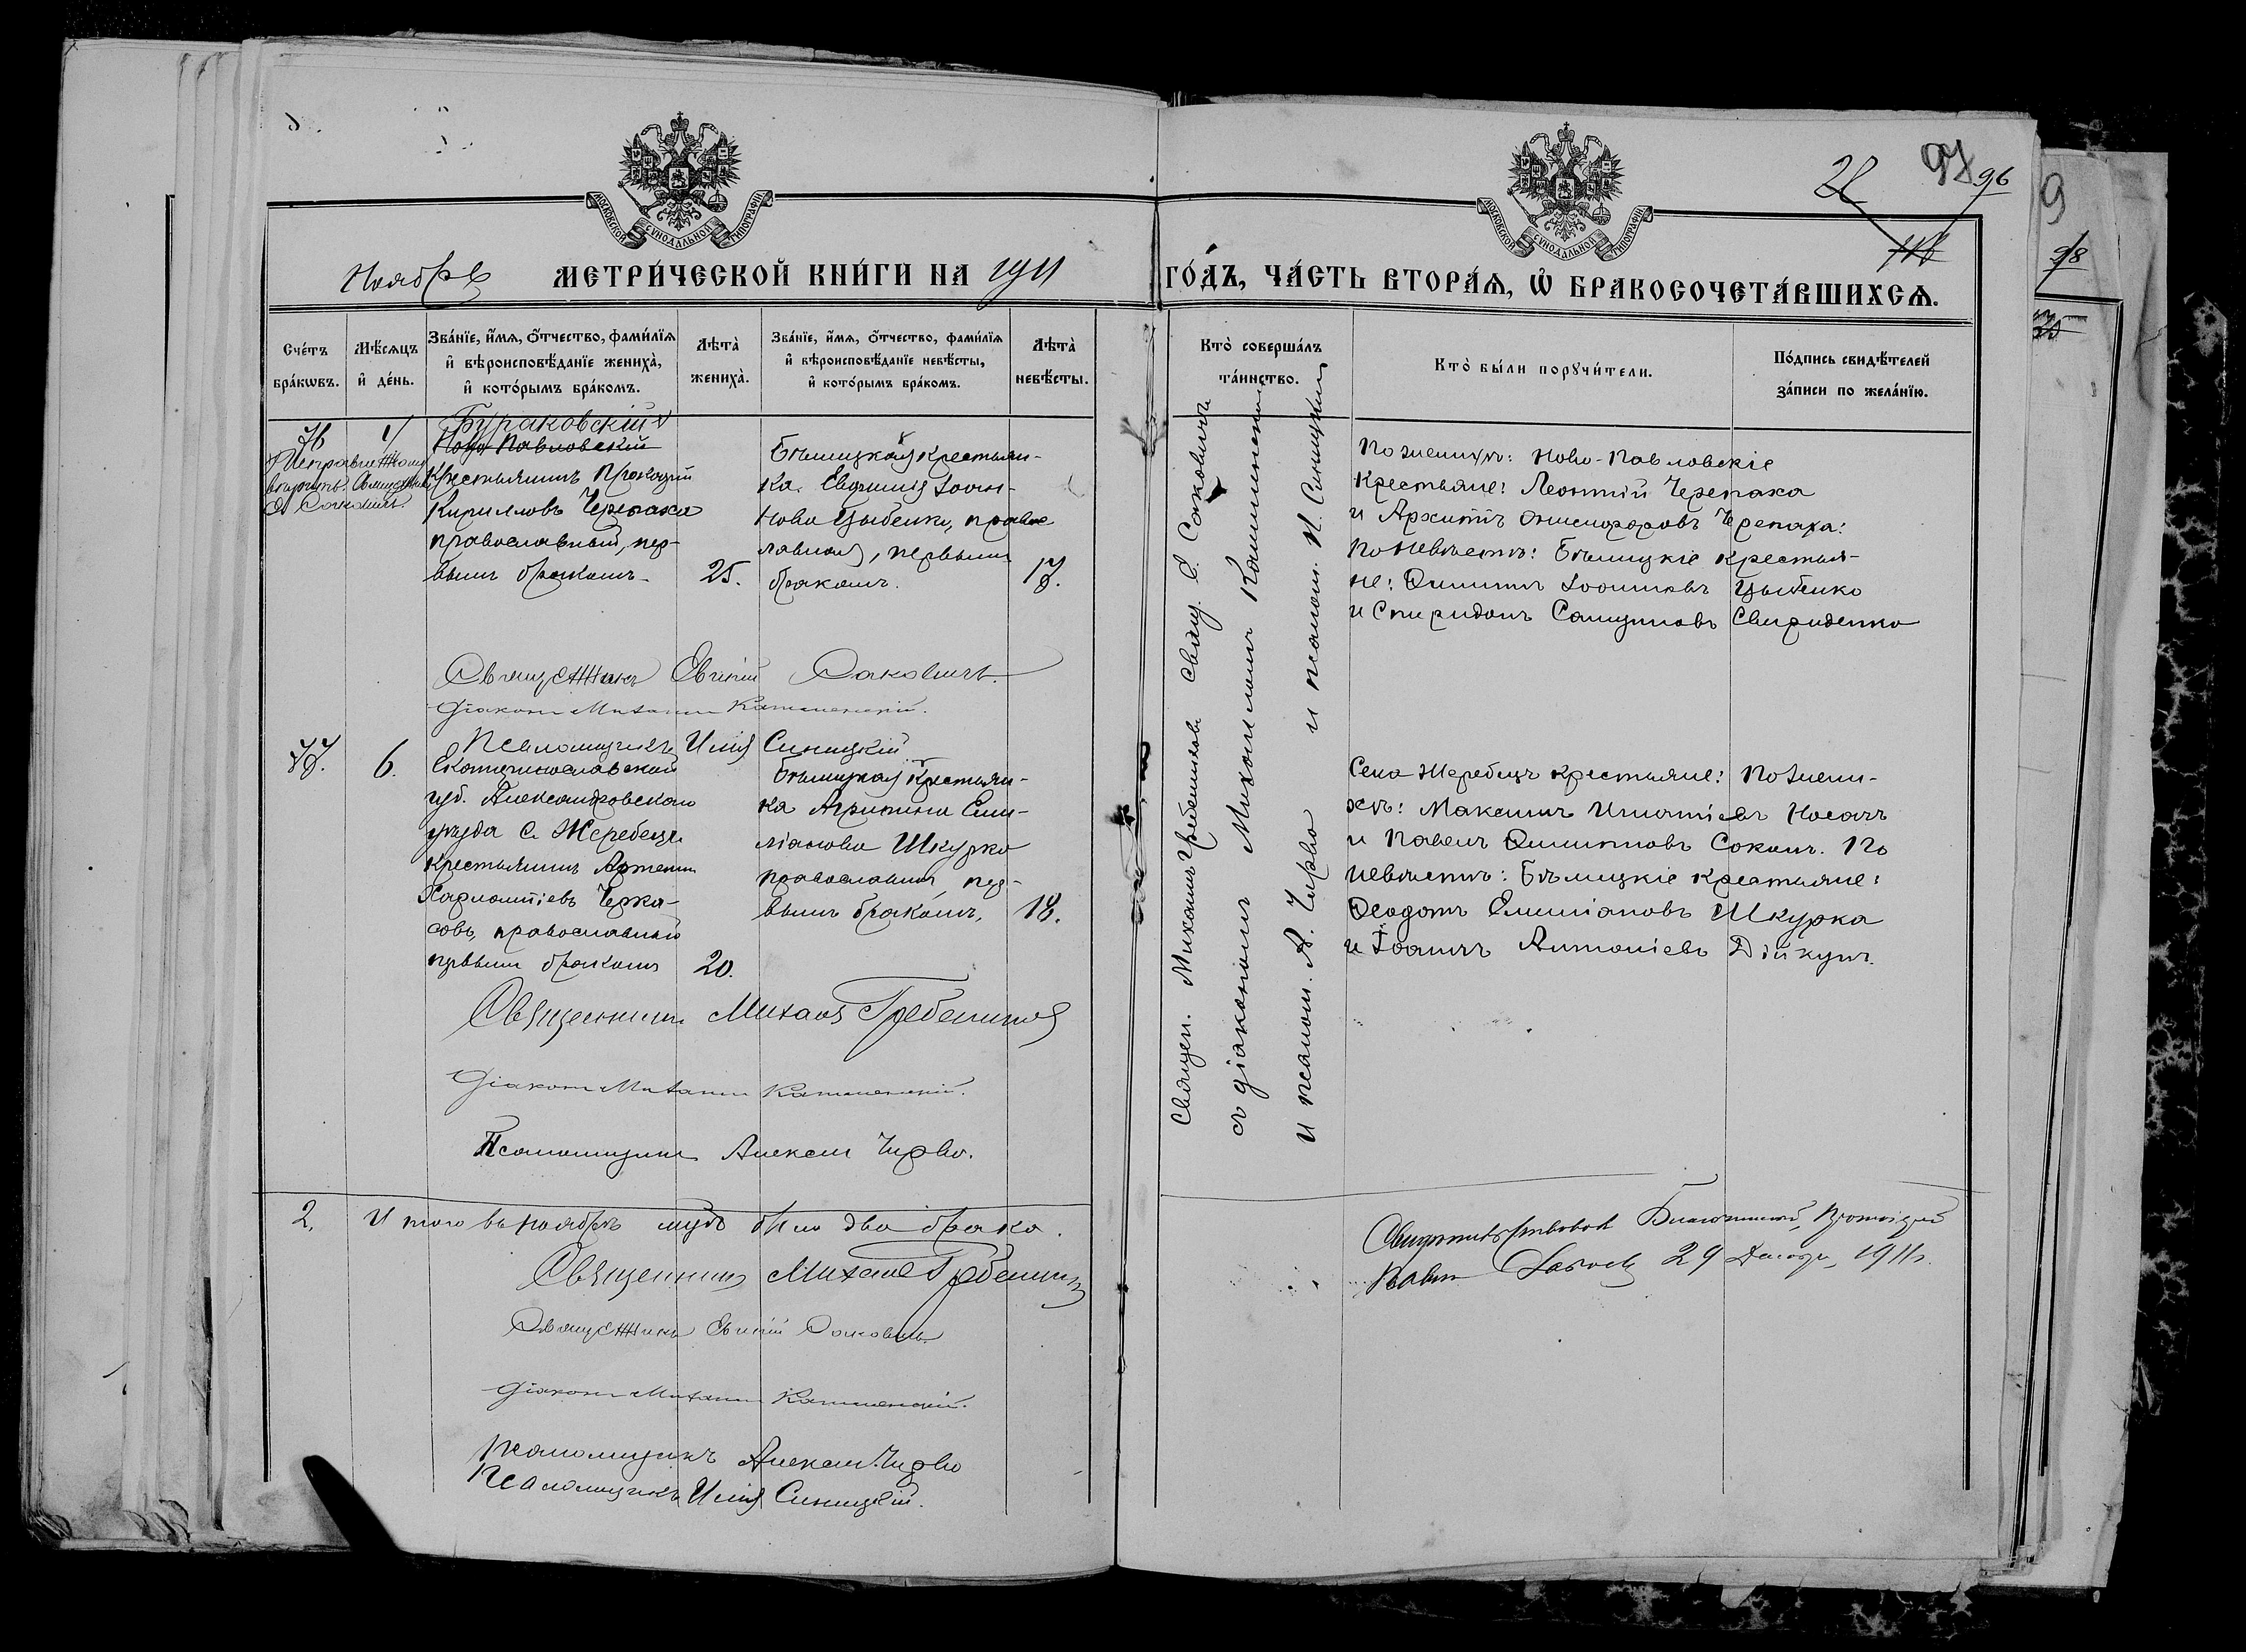 28 97 96
116
МОСКОВСКОЙ СѴНОДАЛЬНОЙ ТИПОГРАФІИ
МОСКОВСКОЙ СѴНОДАЛЬНОЙ ТИПОГРАФІИ
Ноябрь МЕТРИ́ЧЕСКОЙ КНИ́ГИ НА 1911
ГО́ДЪ, ЧА́СТЬ ВТОРА́Ѧ, Ѽ БРАКОСОЧЕТА́ВШИХСѦ.
Сче́тъ
бра́кѡвъ.
Мѣ́сѧцъ
и҆ де́нь.
Зва́нїе, и҆́мѧ, ѻ҆́тчество, фами́лїѧ
и҆ вѣроисповѣ́данїе жениха̀,
и҆ кото́рымъ бра́комъ.
Лѣта̀
жениха̀.
Зва́нїе, и҆́мѧ, ѻ҆́тчество, фами́лїѧ
и҆ вѣроисповѣ́данїе невѣ́сты,
и҆ кото́рымъ бра́комъ.
Лѣта̀
невѣ́сты.
Кто̀ соверша́лъ
та́инство.
Кто̀ бы́ли порꙋчи́тели.
По́дпись свидѣ́телей
за́писи по жела́нїю.
Бураковскій
Ново-Павловскій
крестьянинъ
Кирилловъ Черепаха
православный, пер-
вымъ бракомъ
25.
Бѣлицкая крестьян-
ка Евфимія Іоан-
нова Цыбенко, правос
лавная, первымъ
бракомъ.
17.
Священ. Михаилъ Гребенниковъ Свящ. Е. Саковичъ
съ діакономъ Михаиломъ
и псалом. А. Чирва и псалом. И. Синицкій
По женихѣ: Ново-Павловскіе
крестьяне: Леонтій Черепаха
и Архиппъ Онисифоровъ Черепаха:
По невѣстѣ: Бѣлицкіе крестья-
не: Димитрій Іоанновъ Цыбенко
и Спиридонъ Свириденко
Священникъ Евгеній Саковичъ
Діаконъ Михаилъ
Псаломщикъ Илія Синицкій
77.
6.
Екатеринославской
губ. Александровскаго
уѣзда с. Жеребецъ
крестьянинъ Артемій
Харлампіевъ Черка-
совъ, православный
первымъ бракомъ
20.
Бѣлицкая крестьян-
ка Агрипина Еми-
ліанова Шкурко
православная, пер-
вымъ бракомъ,
18.
Села Жеребецъ крестьяне: По жени-
хѣ: Максимъ Игнатіевъ Носачъ
и Павелъ Димитріевъ Соколъ. По
невѣстѣ: Бѣлицкіе крестьяне:
Ѳеодотъ Емиліановъ Шкурка
и Іоаннъ Антоніевъ Дійкунъ.
Священникъ Михаилъ Гребенниковъ
Діаконъ Михаилъ
Псаломщикъ Алексѣй Чирва.
2. Итого въ ноябрѣ мцѣ было два брака.
Священникъ Михаилъ Гребенниковъ
Священникъ Евгеній Саковичъ
Діаконъ Михаилъ
Псаломщикъ Алексѣй Чирва
Псаломщикъ Илія Синицкій.
Свидѣтельствовалъ Благочинный, Протоіерей
Павелъ 29 Декабря 1911 г.
9
98